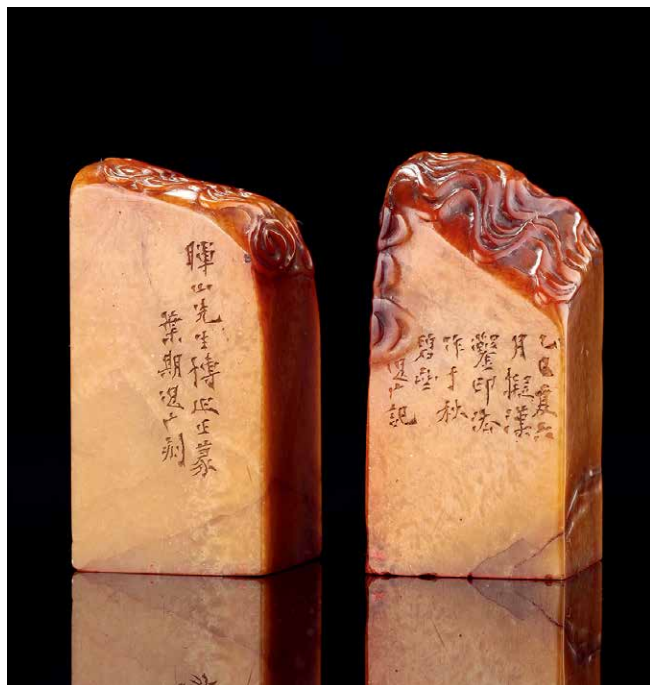 暉山先生博正篆
葉期退厂
乙巳夏六
月擬漢
鑿印法
作于秋
碧堂
退厂記